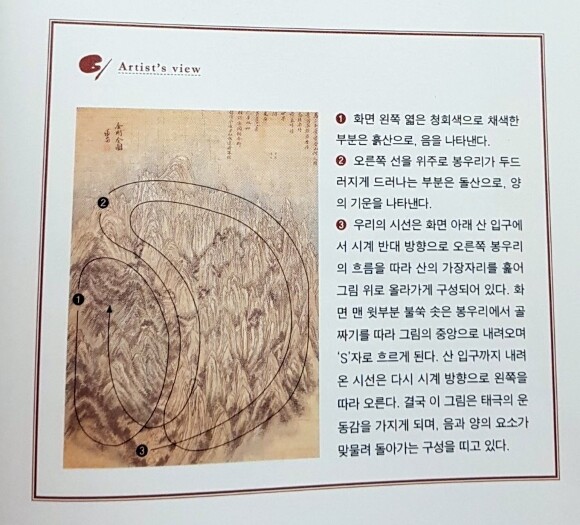 Artist's view
❶ 화면 왼쪽 엷은 청회색으로 채색한
부분은 흙산으로, 음을 나타낸다.
❷ 오른쪽 선을 위주로 봉우리가 두드
러지게 드러나는 부분은 돌산으로, 양
의 기운을 나타낸다.
❸ 우리의 시선은 화면 아래 산 입구에
서 시계 반대 방향으로 오른쪽 봉우리
의 흐름을 따라 산의 가장자리를 훑어
그림 위로 올라가게 구성되어 있다. 화
면 맨 윗부분 불쑥 솟은 봉우리에서 골
짜기를 따라 그림의 중앙으로 내려오며
‘S’자로 흐르게 된다. 산 입구까지 내려
온 시선은 다시 시계 방향으로 왼쪽을
따라 오른다. 결국 이 그림은 태극의 운
동감을 가지게 되며, 음과 양의 요소가
맞물려 돌아가는 구성을 띠고 있다.
❷
❶
❸